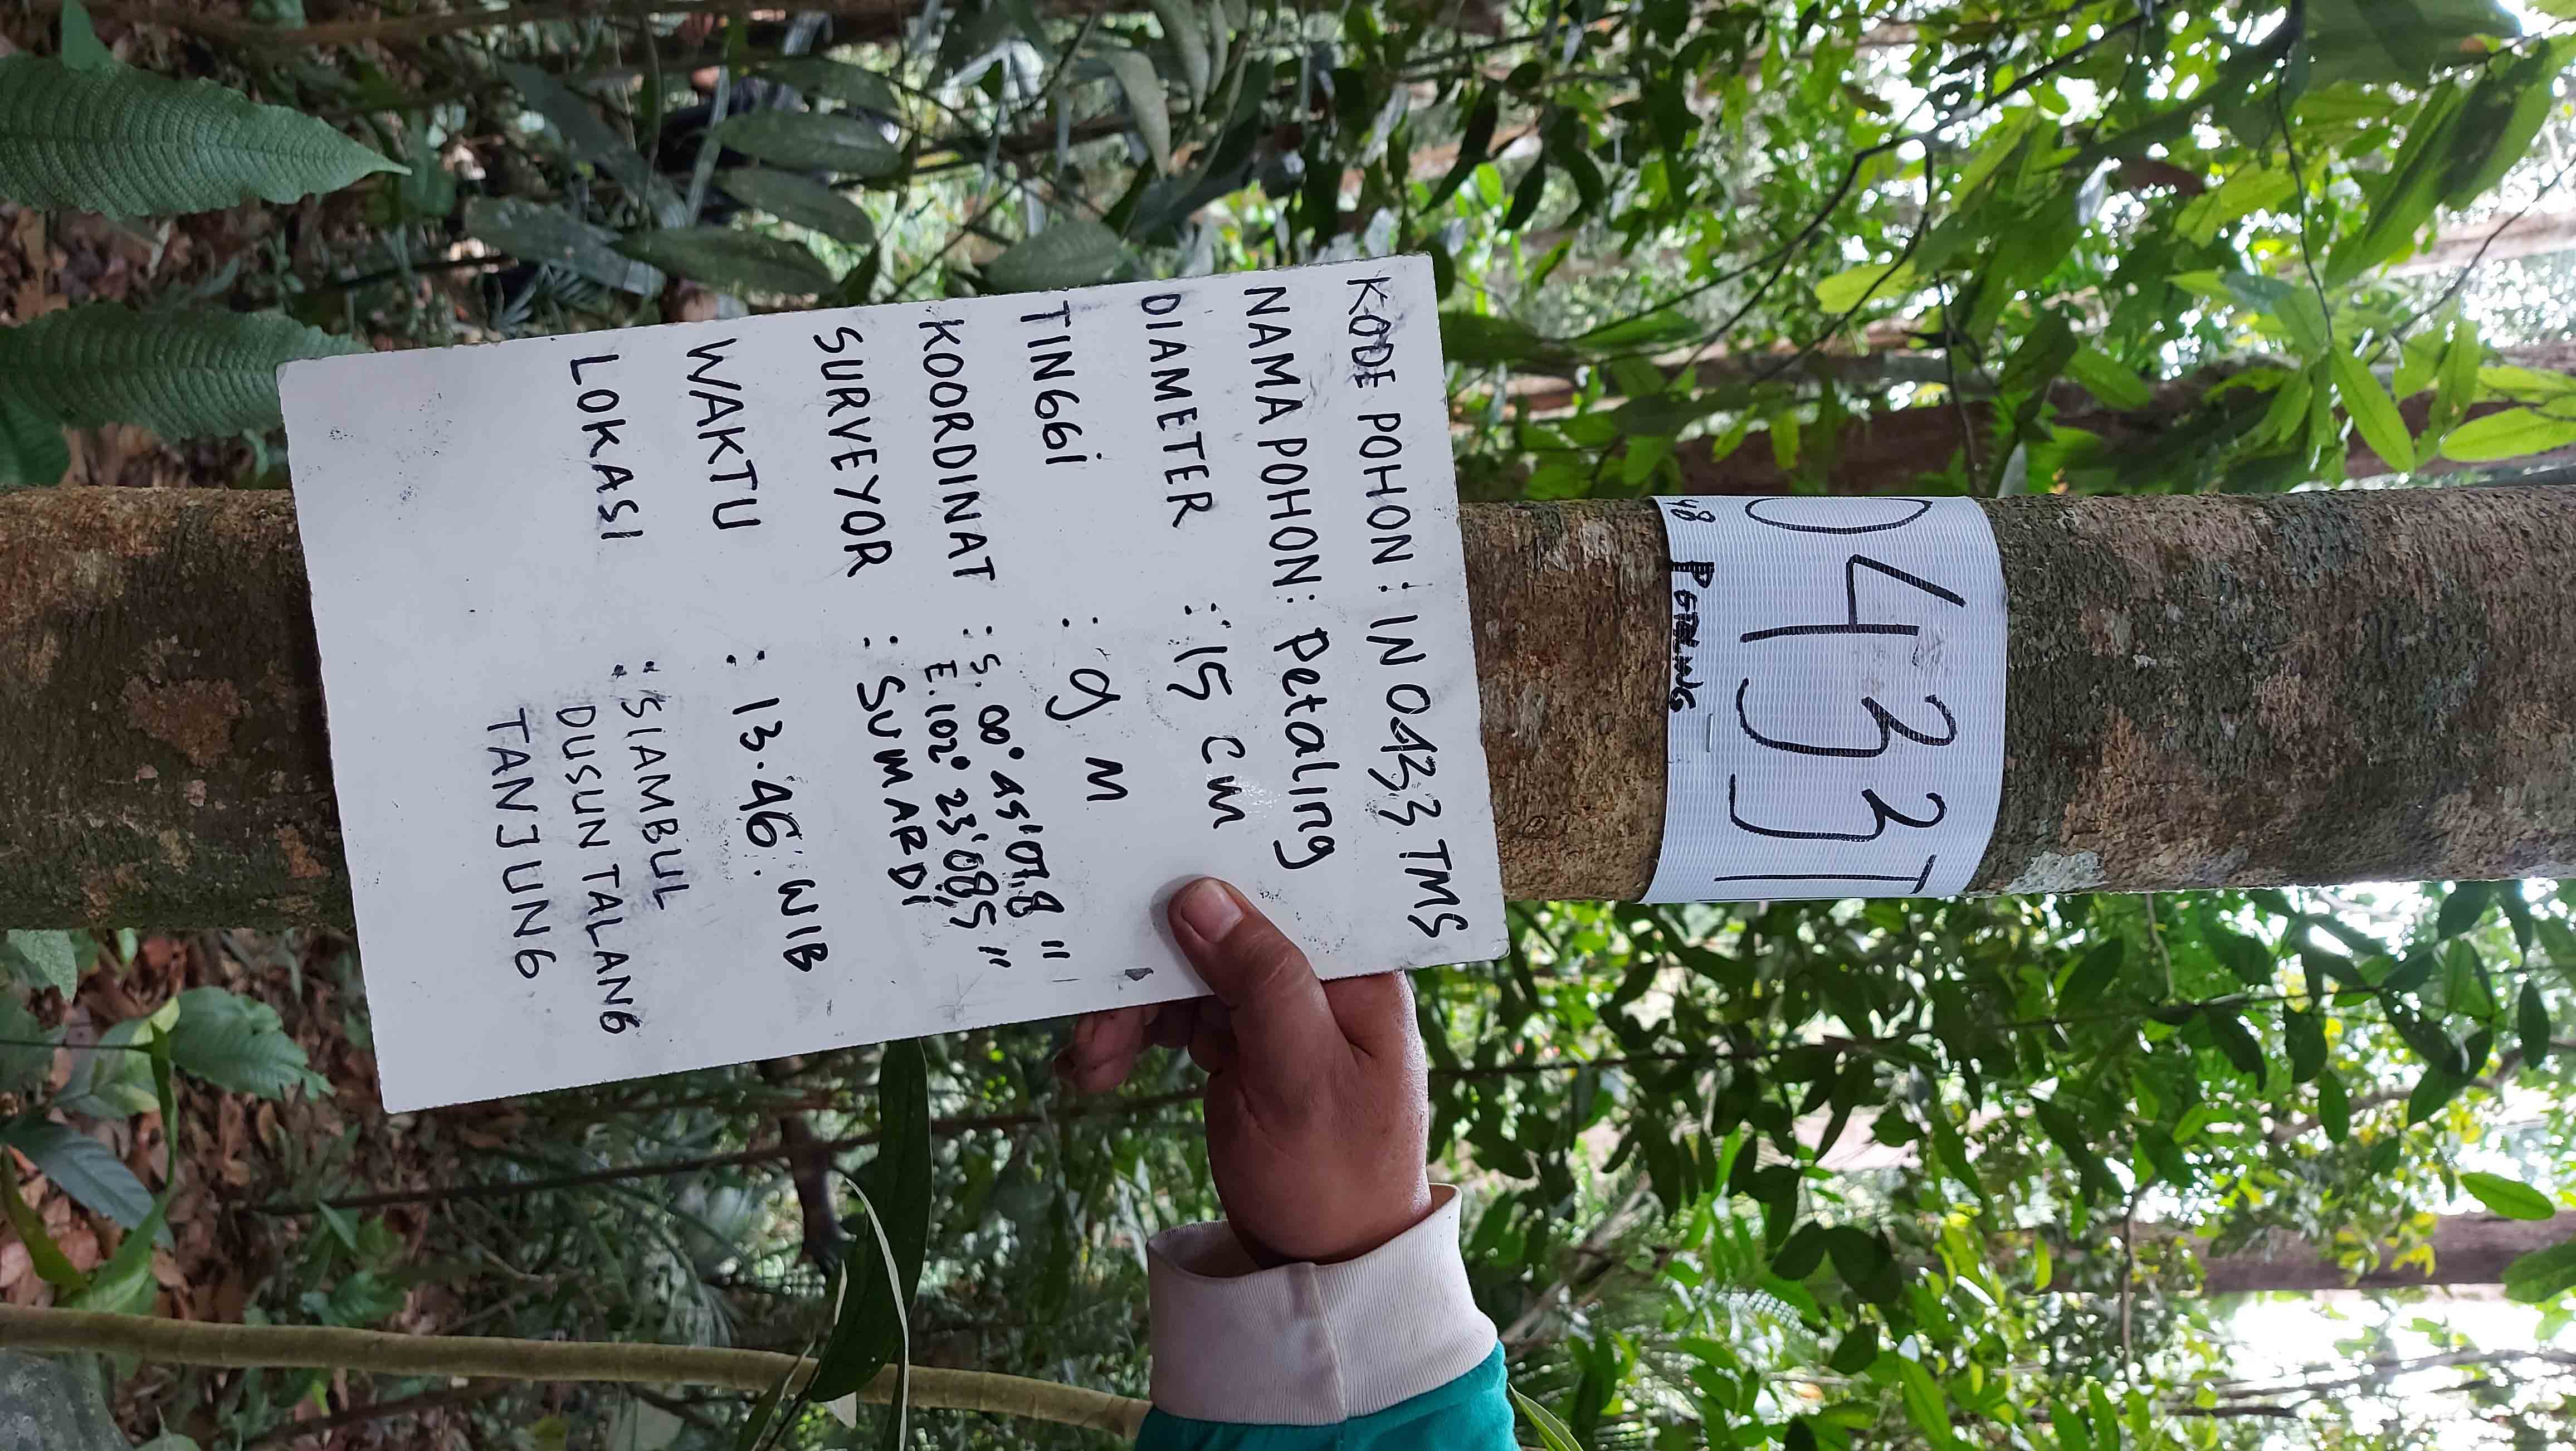 KODE POHON : IN 0433 TMS
NAMA POHON : Petaling
DIAMETER : 15 cm
TINGGi : 9 M
KOORDINAT : S. 00° 45' 07,8 "
E. 102° 23' 08,5 "
SURVEYOR : SUMARDI
WAKTU : 13.46 WIB
LOKASI : SIAMBUL
DUSUN TALANG
TANJUNG
0433T
48 PETALING